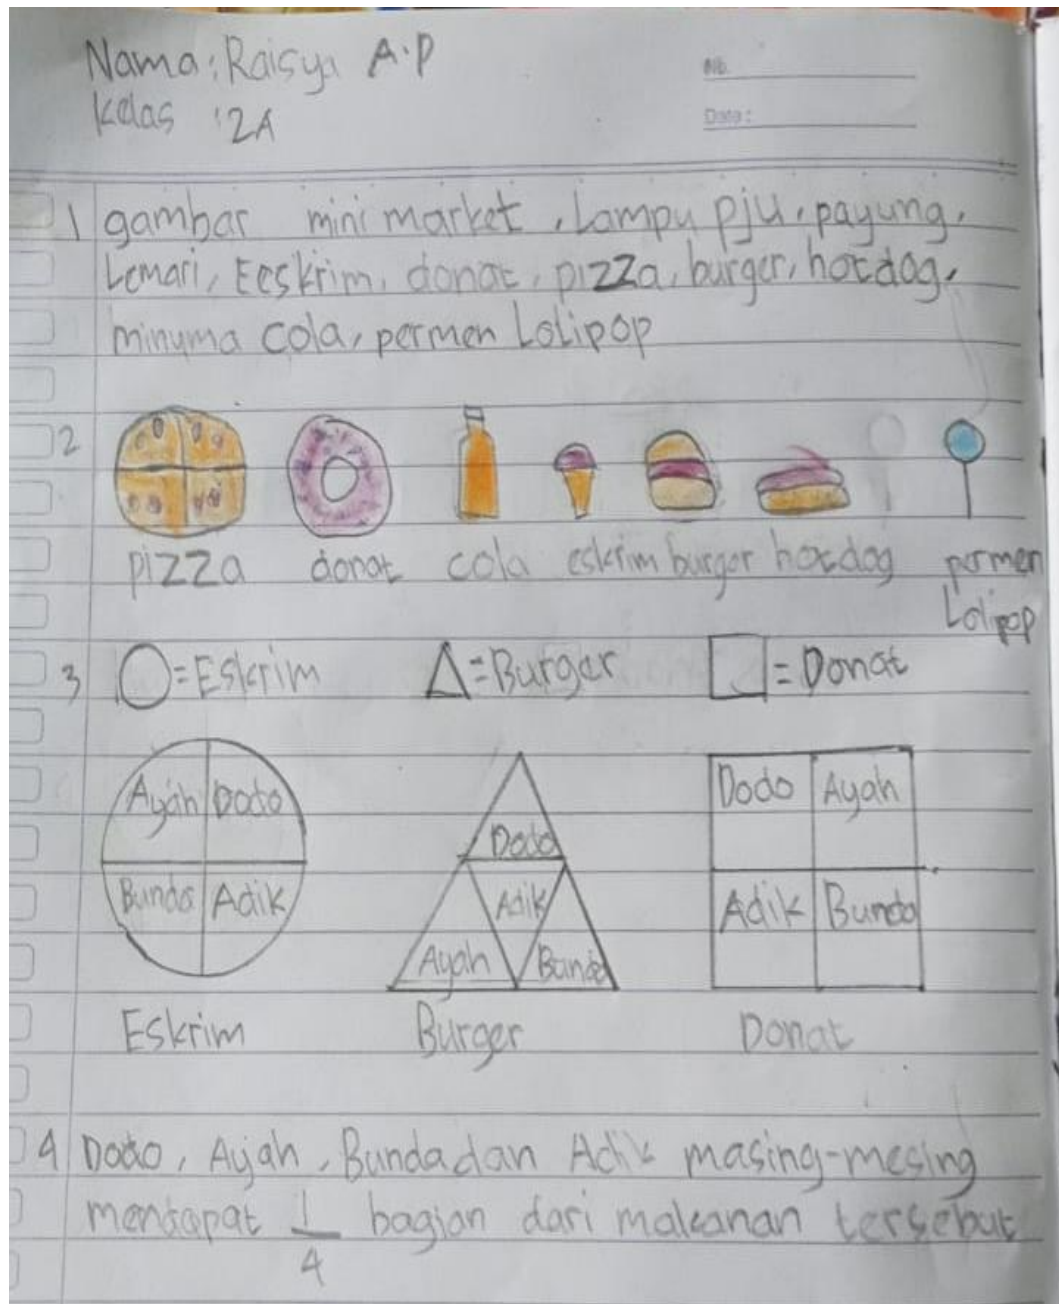 Nama : Raisya A.P
Kelas : 2A
No.
Date :
1 gambar mini market, Lampu pju, payung,
Lemari, Eeskrim, donat, pizza, burger, hotdog,
minyma cola, permen Lolipop
2
pizza donat cola eskrim burger hotdog permen
Lolipop
3 O = Eskrim Δ = Burger □ = Donat
Ayah Dodo
Bunda Adik
Eskrim
Dodo
Adik
Ayah Bunda
Burger
Dodo Ayah
Adik Bunda
Donat
4 Dodo, Ayah, Bunda dan Adik masing-mesing
mendapat 1/4 bagian dari makanan tersebut